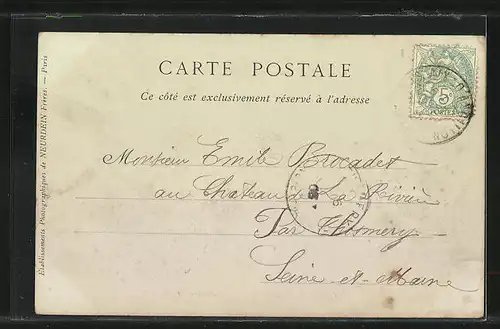 CARTE POSTALE
Ce côté est exclusivement réservé à l'adresse
Monsieur Emile Brocadet
au Chateau de La Rivière
Par Thomery
Seine-et-Marne
Etablissements Photographiques de NEURDEIN Frères. — Paris
5
POSTES